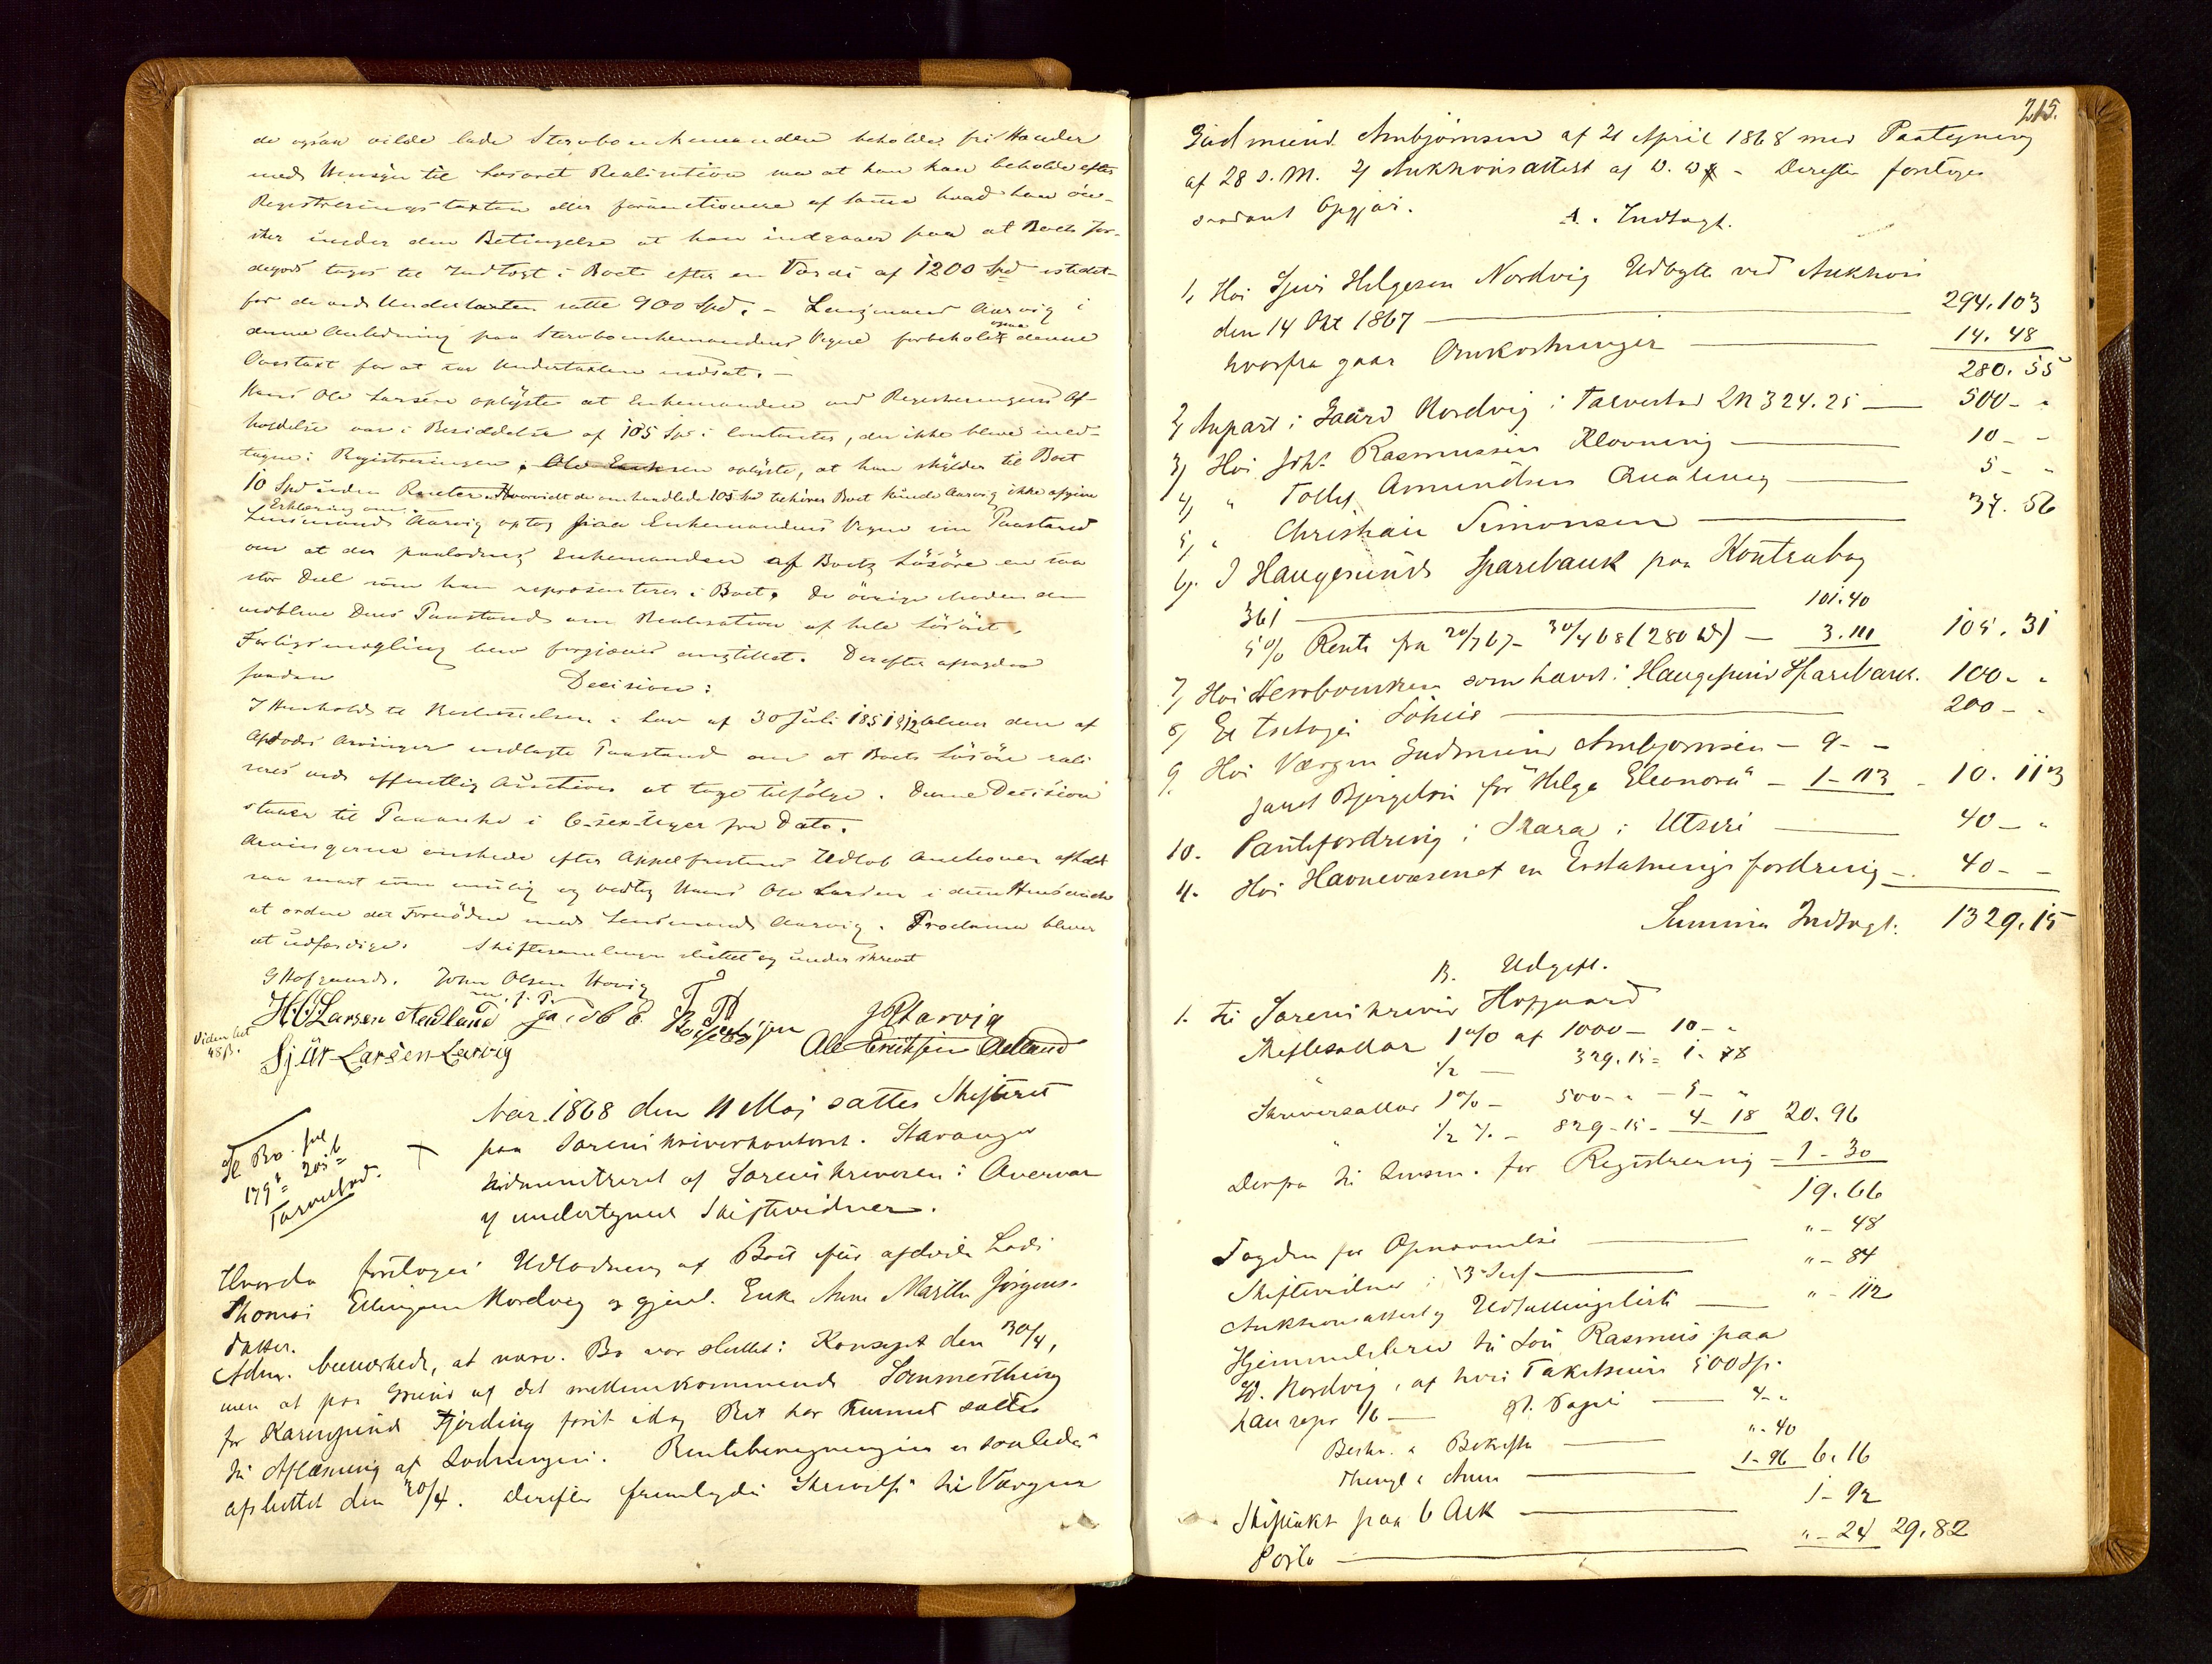 de ogsaa vilde lade Stervboenkemanden beholde fri Hænder
med Hensyn til Løsøret Realisation saa at han kan beholde efter
Registreringstaxten eller forauctionere af samme hvad han øn-
sker under den Betingelse at han indgaaer paa at Boets Jor-
degods tages til Indtægt i Boet efter en Værdi af 1200 Spd istedet-
for de ved Undertaxten satte 900 Spd. - Lensmand Aarvig i
denne Anledning paa Stervboenkemandens Vegne forbeholdt denne
Overtaxt for at faa Undertaxten nedsat. -
Hans Ole Larsen oplyste at Enkemanden ved Registreringens Af-
holdelse var i Besiddelse af 105 Spd i Contanter, der ikke bleve med-
tagne i Registreringen; Ole Eriksen oplyste, at han skylder til Boet
10 Spd uden Renter. Hvorvidt de omhandlede 105 Spd tilhører Boet kunde Aarvig ikke afgive
Erklæring om.
Lensmand Aarvig optog paa Enkemandens Vegne en Paastand
om at der paalodnes Enkemanden af Boets Løsøre en saa
stor Deel som han repræsenterer i Boet. De øvrige
vedbleve Deres Paastand om Realisation af hele Løsøret.
Forligsmægling blev forgjæves anstillet. Derefter afsagdes
saadan
Decision:
I Henhold til Bestemmelsen i Lov af 30 Juli 1851 § 12 bliver den af
Afdødes Arvinger nedlagte Paastand om at Boets Løsøre reali-
seres ved offentlig Auction at tage tilfølge. Denne Decision
staaer til Paaanke i 6-sex-Uger fra Dato.
Arvingerne ønskede efter Appelfristens Udløb Auctionen afholdt
saa snart som mulig og vedtog Hans Ole Larsen i denne Henseende
at ordne det Fornødne med Lensmand Aarvig. Proclama bliver
at udfærdige. Skiftesamlingen sluttet og underskrevet
G Hofgaard. John Olsen Hovig
m. f. P.
H. O Larsen Aadland Jacob E.
J R Aarvig
Viden bet
48 ß.
Sjur Larsen Larvig
Ole Eriksen Adland
Aar 1868 den 11 Maj sattes Skifteret
paa Sorenskriverkontoret i Stavanger
Administreret af Sorenskriveren i Overvær
af undertegnede Skiftevidner.
Se Bo. fol
179 203 b
Torvestad.
Hvorda foretoges Udlodning af Boet efter afdøde Lods
Thomas Ellingsen Nordvig og gjenl. Enke Anne Martha Jørgens-
datter.
Adm. bemærkede, at nærv. Bo var sluttet i Koncept den 30/4,
men at paa Grund af det mellemkommende Sommerthing
for Karmsund Fjerding først idag Ret har kunnet sættes
til Aflæsning af Lodningen. Renteberegningen er saaledes
afsluttet den 30/4. Derefter fremlagdes Skrivelse til Værgen
215.
Gudmund Ambjørnsen af 21 April 1868 med Paategning
af 28 s. M. og Auktionsattest af D. D. - Derefter foretoges
saadant Opgjør.
A. Indtægt.
1, Hos Sjur Helgesen Nordvig Udbytte ved Auktion
den 14 Okt 1867 294.103
hvorfra gaar Omkostninger 14. 48
280. 55
2, Anpart i Gaard Nordvig i Torvestad LN 324.25 500 - "
3, Hos Johs Rasmussen Klovning 10 - -
4, " Tollef Amundsen Qualevig 5 - "
5, " Christian Simonsen 37. 56
6. I Haugesunds Sparebank paa Kontrabog
361 101.40
5% Rente fra 20/7 67 - 30/4 68 (280 D) - 3.111 105. 31
7, Hos Stervboenken som hævet i Haugesund Sparebank. 100 - "
8, Et Lohus 200 - -
9. Hos Værgen Gudmund Ambjørnsen - 9 - -
samt Bjergeløn for "Helga Eleonora" - 1 - 113 - 10. 113
10. Pantefordring i Skara i Utsire 40 - "
11. Hos Havnevæsenet en Erstatnings fordring - 40 - -
Summa Indtægt. 1329. 15
B. Udgift.
1. Til Sorenskriver Hofgaard
Skiftesallar 1% af 1000 - 10 - "
1/2 - 329. 15 = 1. 78
Skriversallar 1% - 500 - " - 5 - "
1/2 % - 829 - 15 - 4 - 18 20. 96
Derfra til Lensm. for Registrering - 1 - 30
19. 66
Dagden for Opnævnelse " - 48
Skiftevidner i 3 Sess. " - 84
Auktionsattest og Udstillingsliste " - 112
Hjemmelsbrev til Søn Rasmus paa
Gd. Nordvig, af hvis Takstsum 500 Sp.
han repr 1/6 - st. Papir 4 - "
Beskr. & Bekræft " - 40
Thingl & Anm 1 - 96 6. 16
Skifteakt paa 6 Ark 1 - 92
Porto " - 24 29. 82